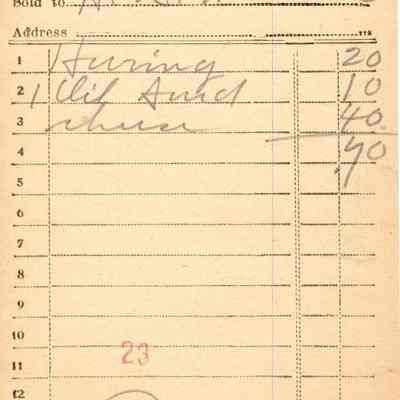 Sold to
Address
1 Hering 20
2 1 10
3 cheese 40
4 70
5
6
7
8
9
10
23
11
12